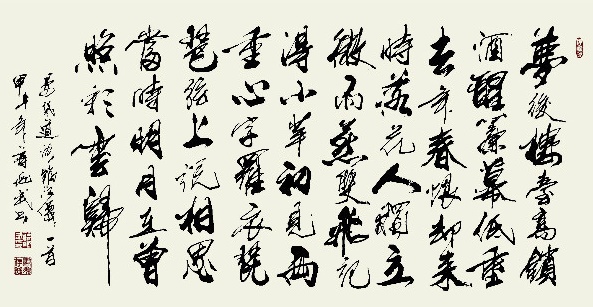 夢後樓臺高鎖
酒醒簾幕低垂
去年春恨却來
時落花人獨立
微雨燕雙飛記
得小苹初見兩
重心字羅衣琵
琶弦上說相思
當時明月在曾
照彩雲歸
晏幾道詞臨江仙一首
甲午年